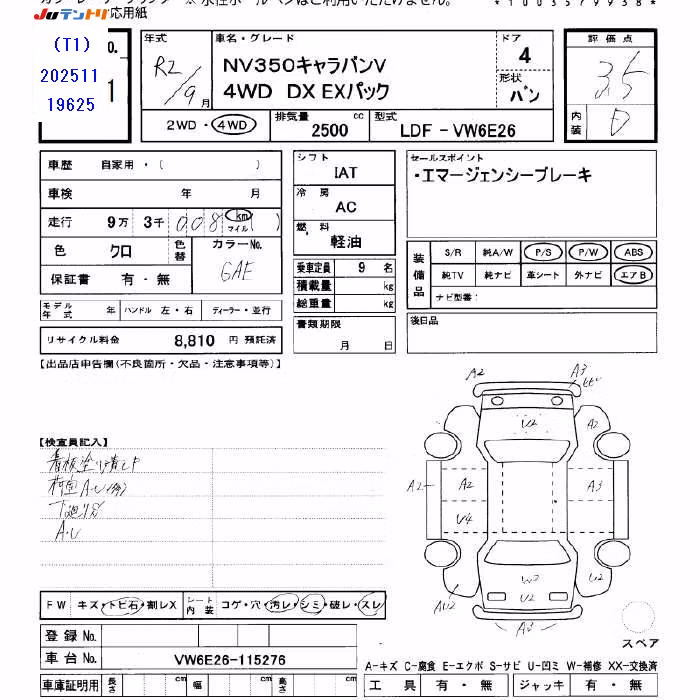 JUテントリ 応用紙
*1003579938*
(T1)
202511
19625
No.
1
年式
R2/9月
車名・グレード
NV350キャラバンV
4WD DX EXパック
ドア
4
形状
バン
評価点
3.5
内装
D
2WD・4WD
排気量 2500 cc
型式 LDF-VW6E26
車歴 自家用・( )
車検 年 月
走行 9万 3千 008 km マイル ( )
色 クロ
色替
カラーNo. GAE
保証書 有・無
モデル年式 年
ハンドル 左・右
ディーラー・並行
リサイクル料金 8,810 円 預託済
シフト
IAT
冷房
AC
燃料
軽油
乗車定員 9 名
積載量 kg
総重量 kg
書類期限
月 日
セールスポイント
・エマージェンシーブレーキ
装備品
S/R 純A/W P/S P/W ABS
純TV 純ナビ 革シート 外ナビ エアB
ナビ型番:
後日品
【出品店申告欄(不良箇所・欠品・注意事項等)】
【検査員記入】
A・U
A2
A3
U2
A2
A2
A2
A3
U4
W2
U2
U2
AU2
U2
A3
スペア
FW キズ・トビ石・割レX
シート内装 コゲ・穴・汚レ・シミ・破レ・スレ
登録No.
車台No. VW6E26-115276
車庫証明用 長さ cm 幅 cm 高さ cm
A-キズ C-腐食 E-エクボ S-サビ U-凹ミ W-補修 XX-交換済
工具 有・無 ジャッキ 有・無